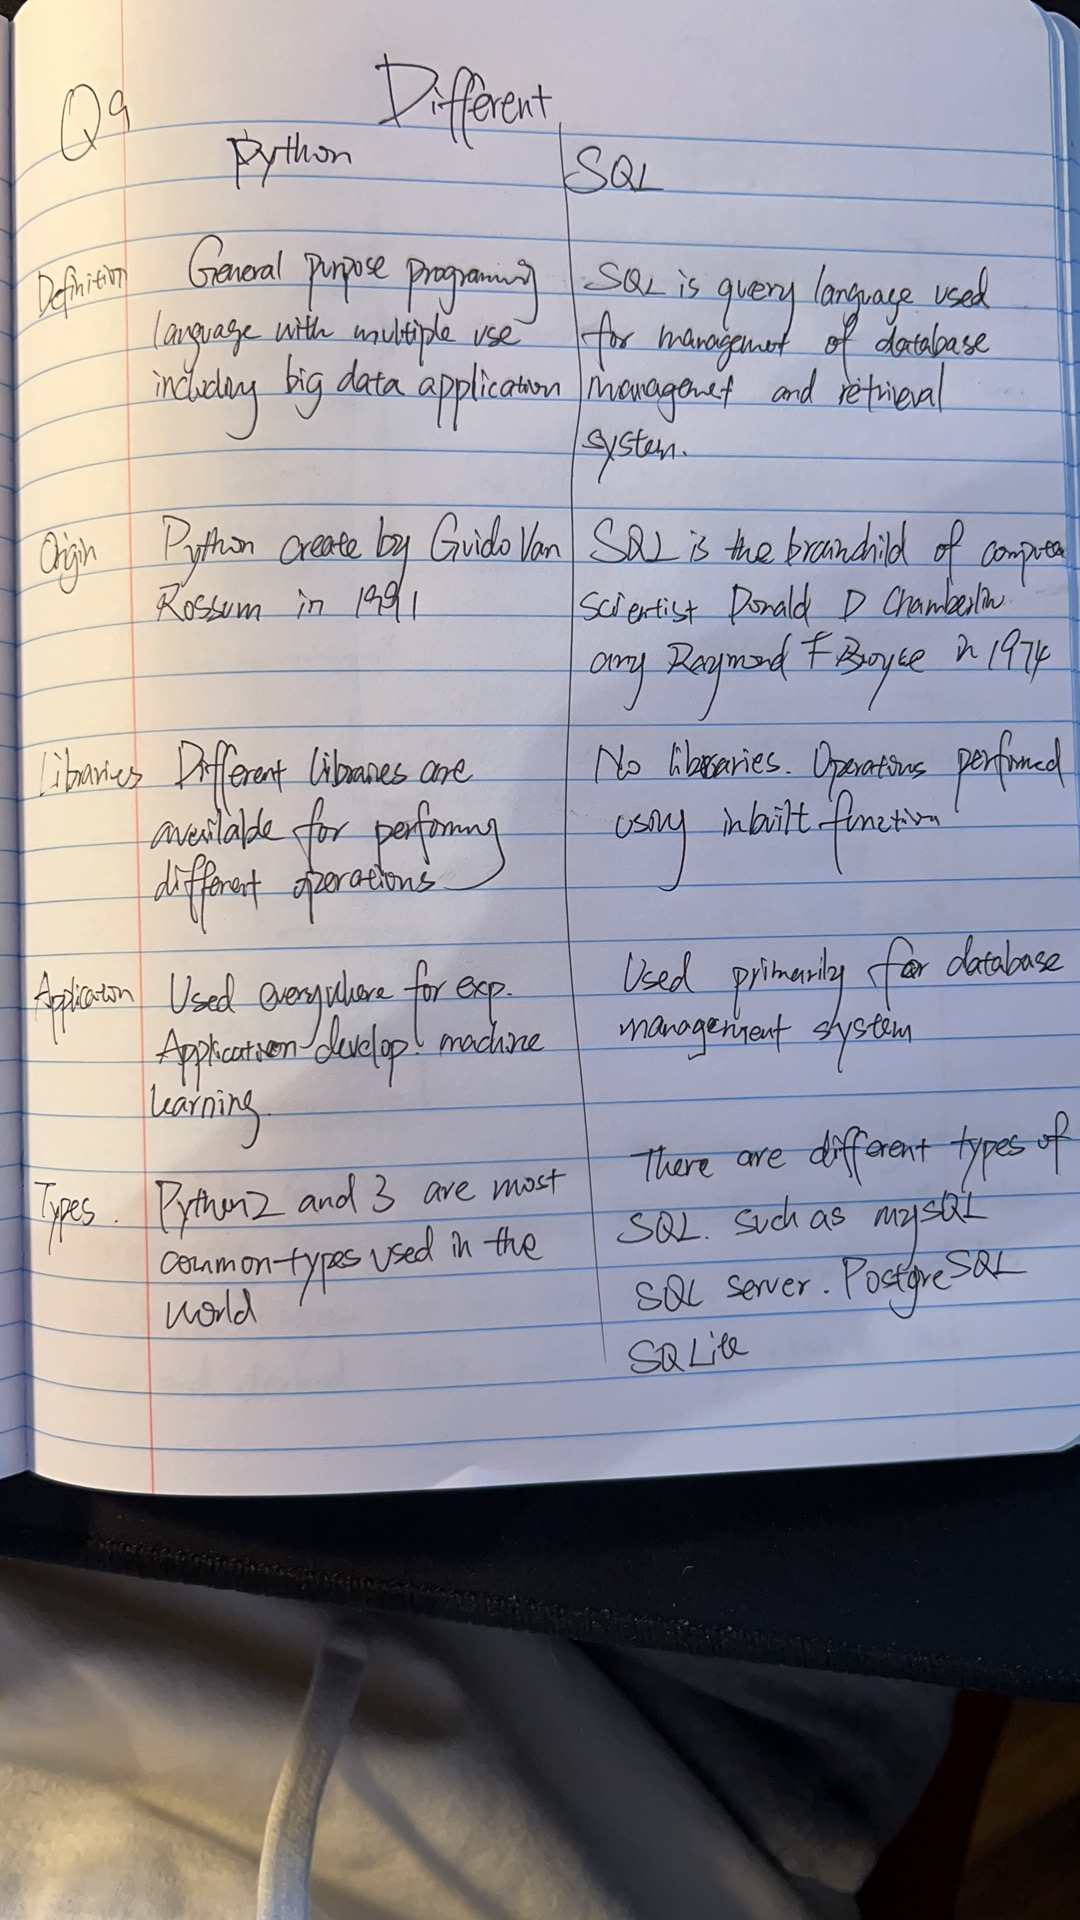 Q9
Different
Python
SQL
Definition
General purpose programing
language with multiple use
including big data application
SQL is query language used
for management of database
management and retrieval
system.
Origin
Python create by Guido Van
Rossum in 1991
SQL is the brainchild of computer
scientist Donald D Chamberlin
any Raymond F Broyce in 1974
Libraries
Different libraries are
available for performing
different operations
No libraries. Operations performed
using inbuilt function
Application
Used everywhere for exp.
Application develop. machine
learning.
Used primarily for database
management system
Types.
Python2 and 3 are most
common types used in the
world
There are different types of
SQL. such as mySQL
SQL server. PostgreSQL
SQLite